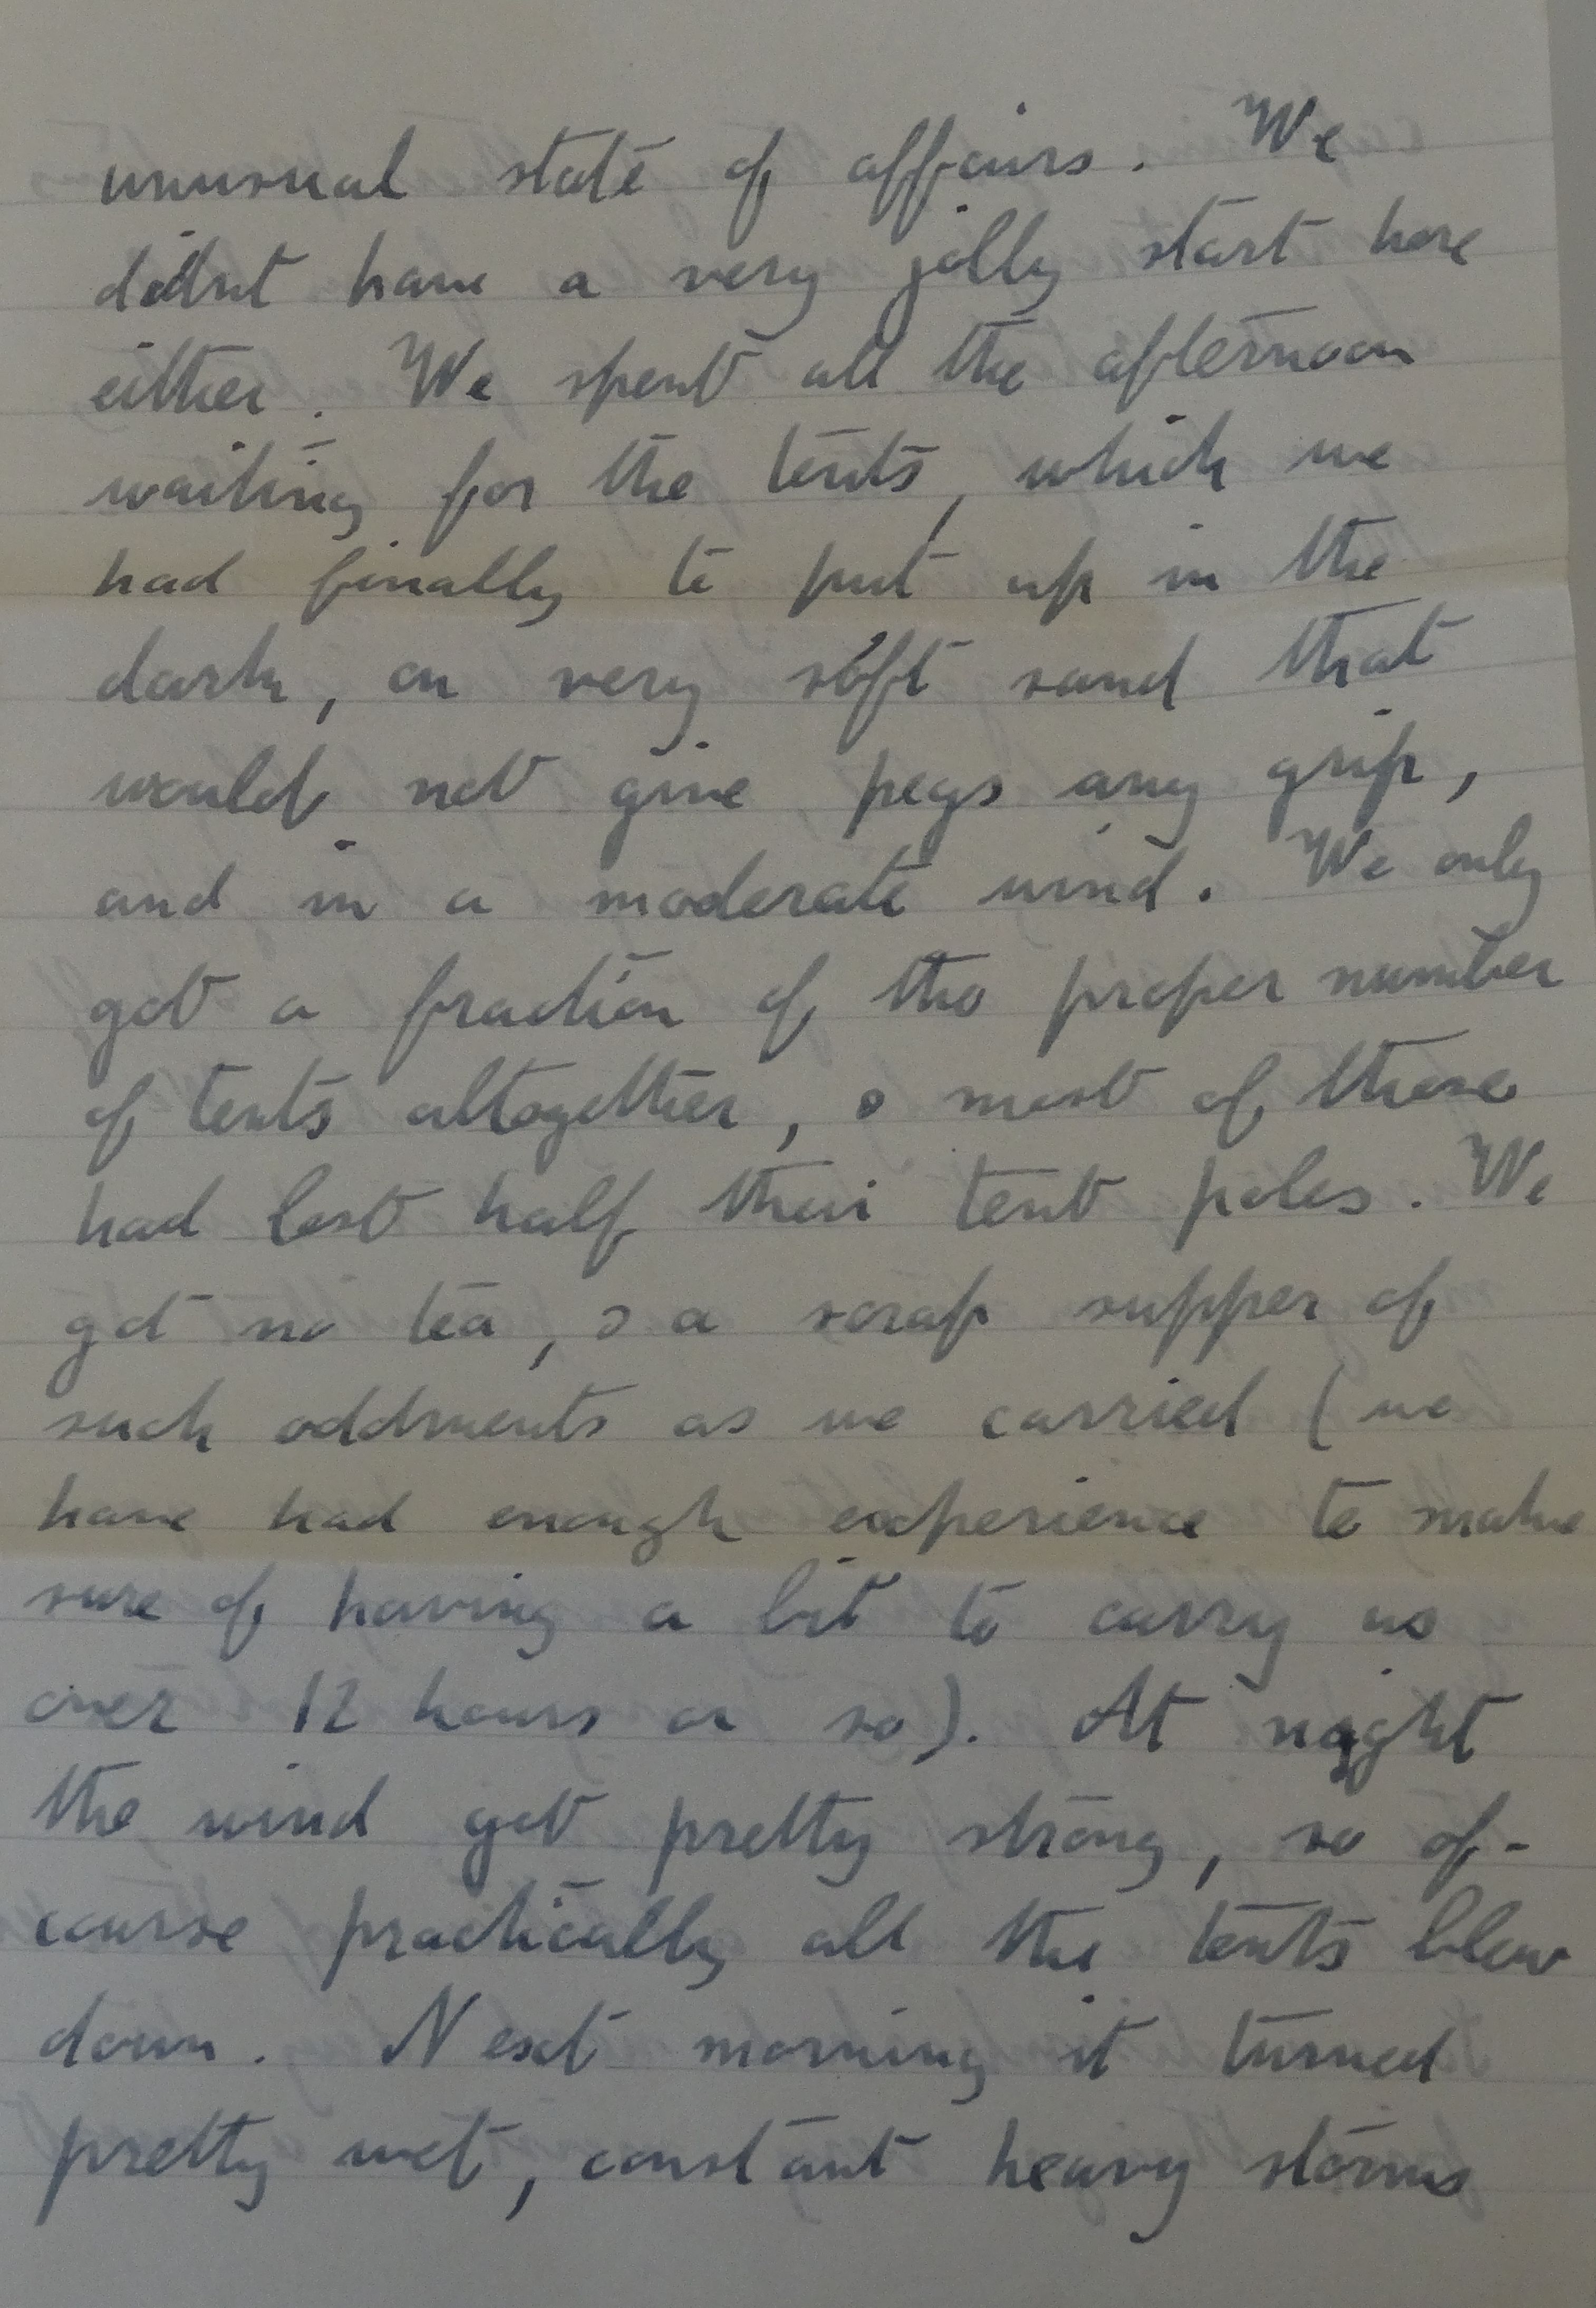 unusual state of affairs. We
didnt have a very jolly start here
either. We spent all the afternoon
waiting for the tents, which we
had finally to put up in the
dark, on very soft sand that
would not give pegs any grip,
and in a moderate wind. We only
got a fraction of the proper number
of tents altogether, & most of these
had lost half their tent poles. We
got no tea, & a scrap supper of
such oddments as we carried (we
have had enough experience to make
sure of having a bit to carry us
over 12 hours or so). At night
the wind got pretty strong, so of-
course practically all the tents blew
down. Next morning it turned
pretty wet, constant heavy storms